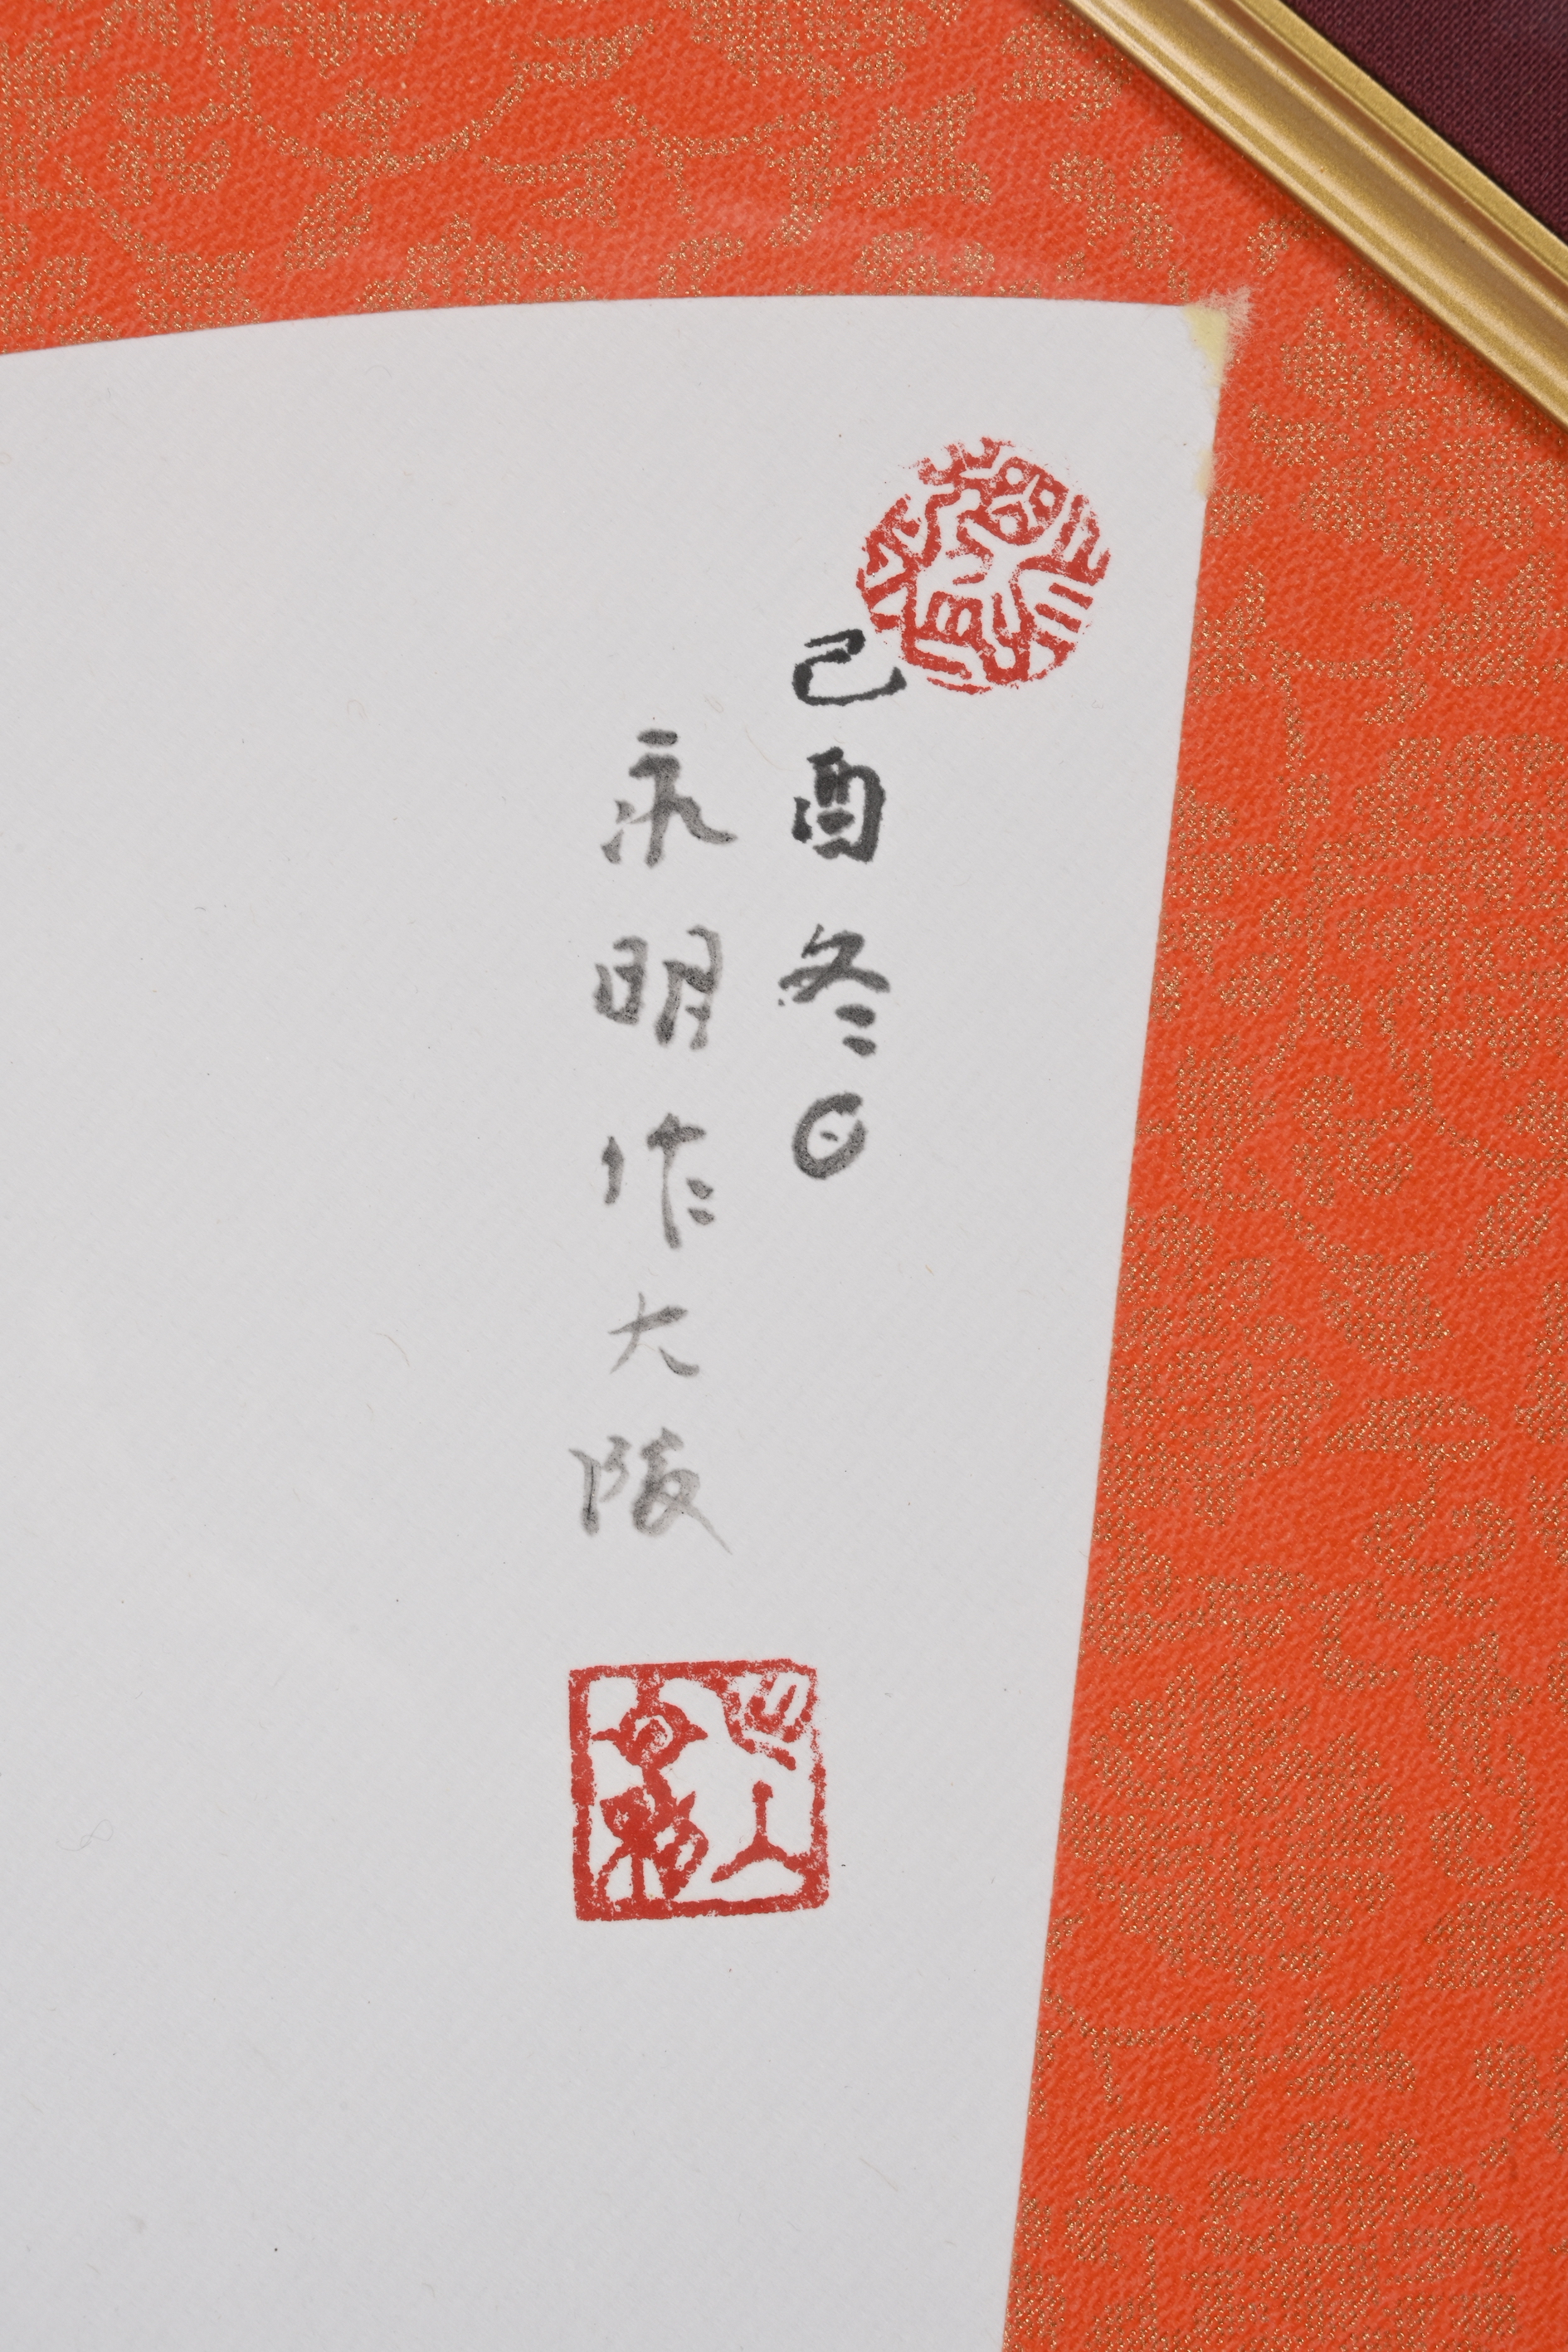 己酉冬日
永明作大阪